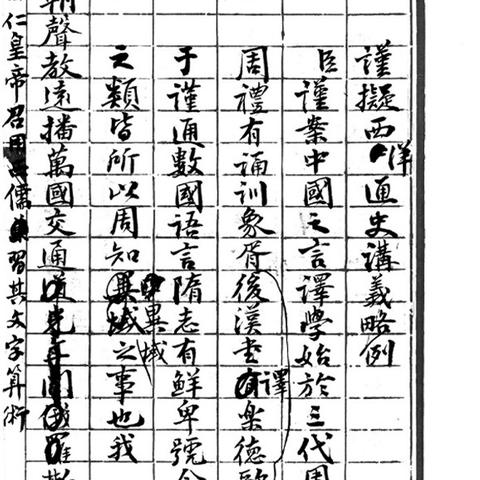 謹擬西洋通史講義略例
臣謹案中國之言譯學始於三代周
周禮有誦訓象胥後漢書譯楽德歌
于謹通數國語言隋志有鮮卑號令
之類皆所以周知異域之事也我
朝聲教遠播萬國交通道光年間俄羅斯
仁皇帝召用儒習其文字算術